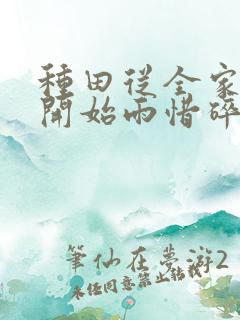 種田從全家
開始雨惜碎
筆仙在夢游2
未经同意禁止转载